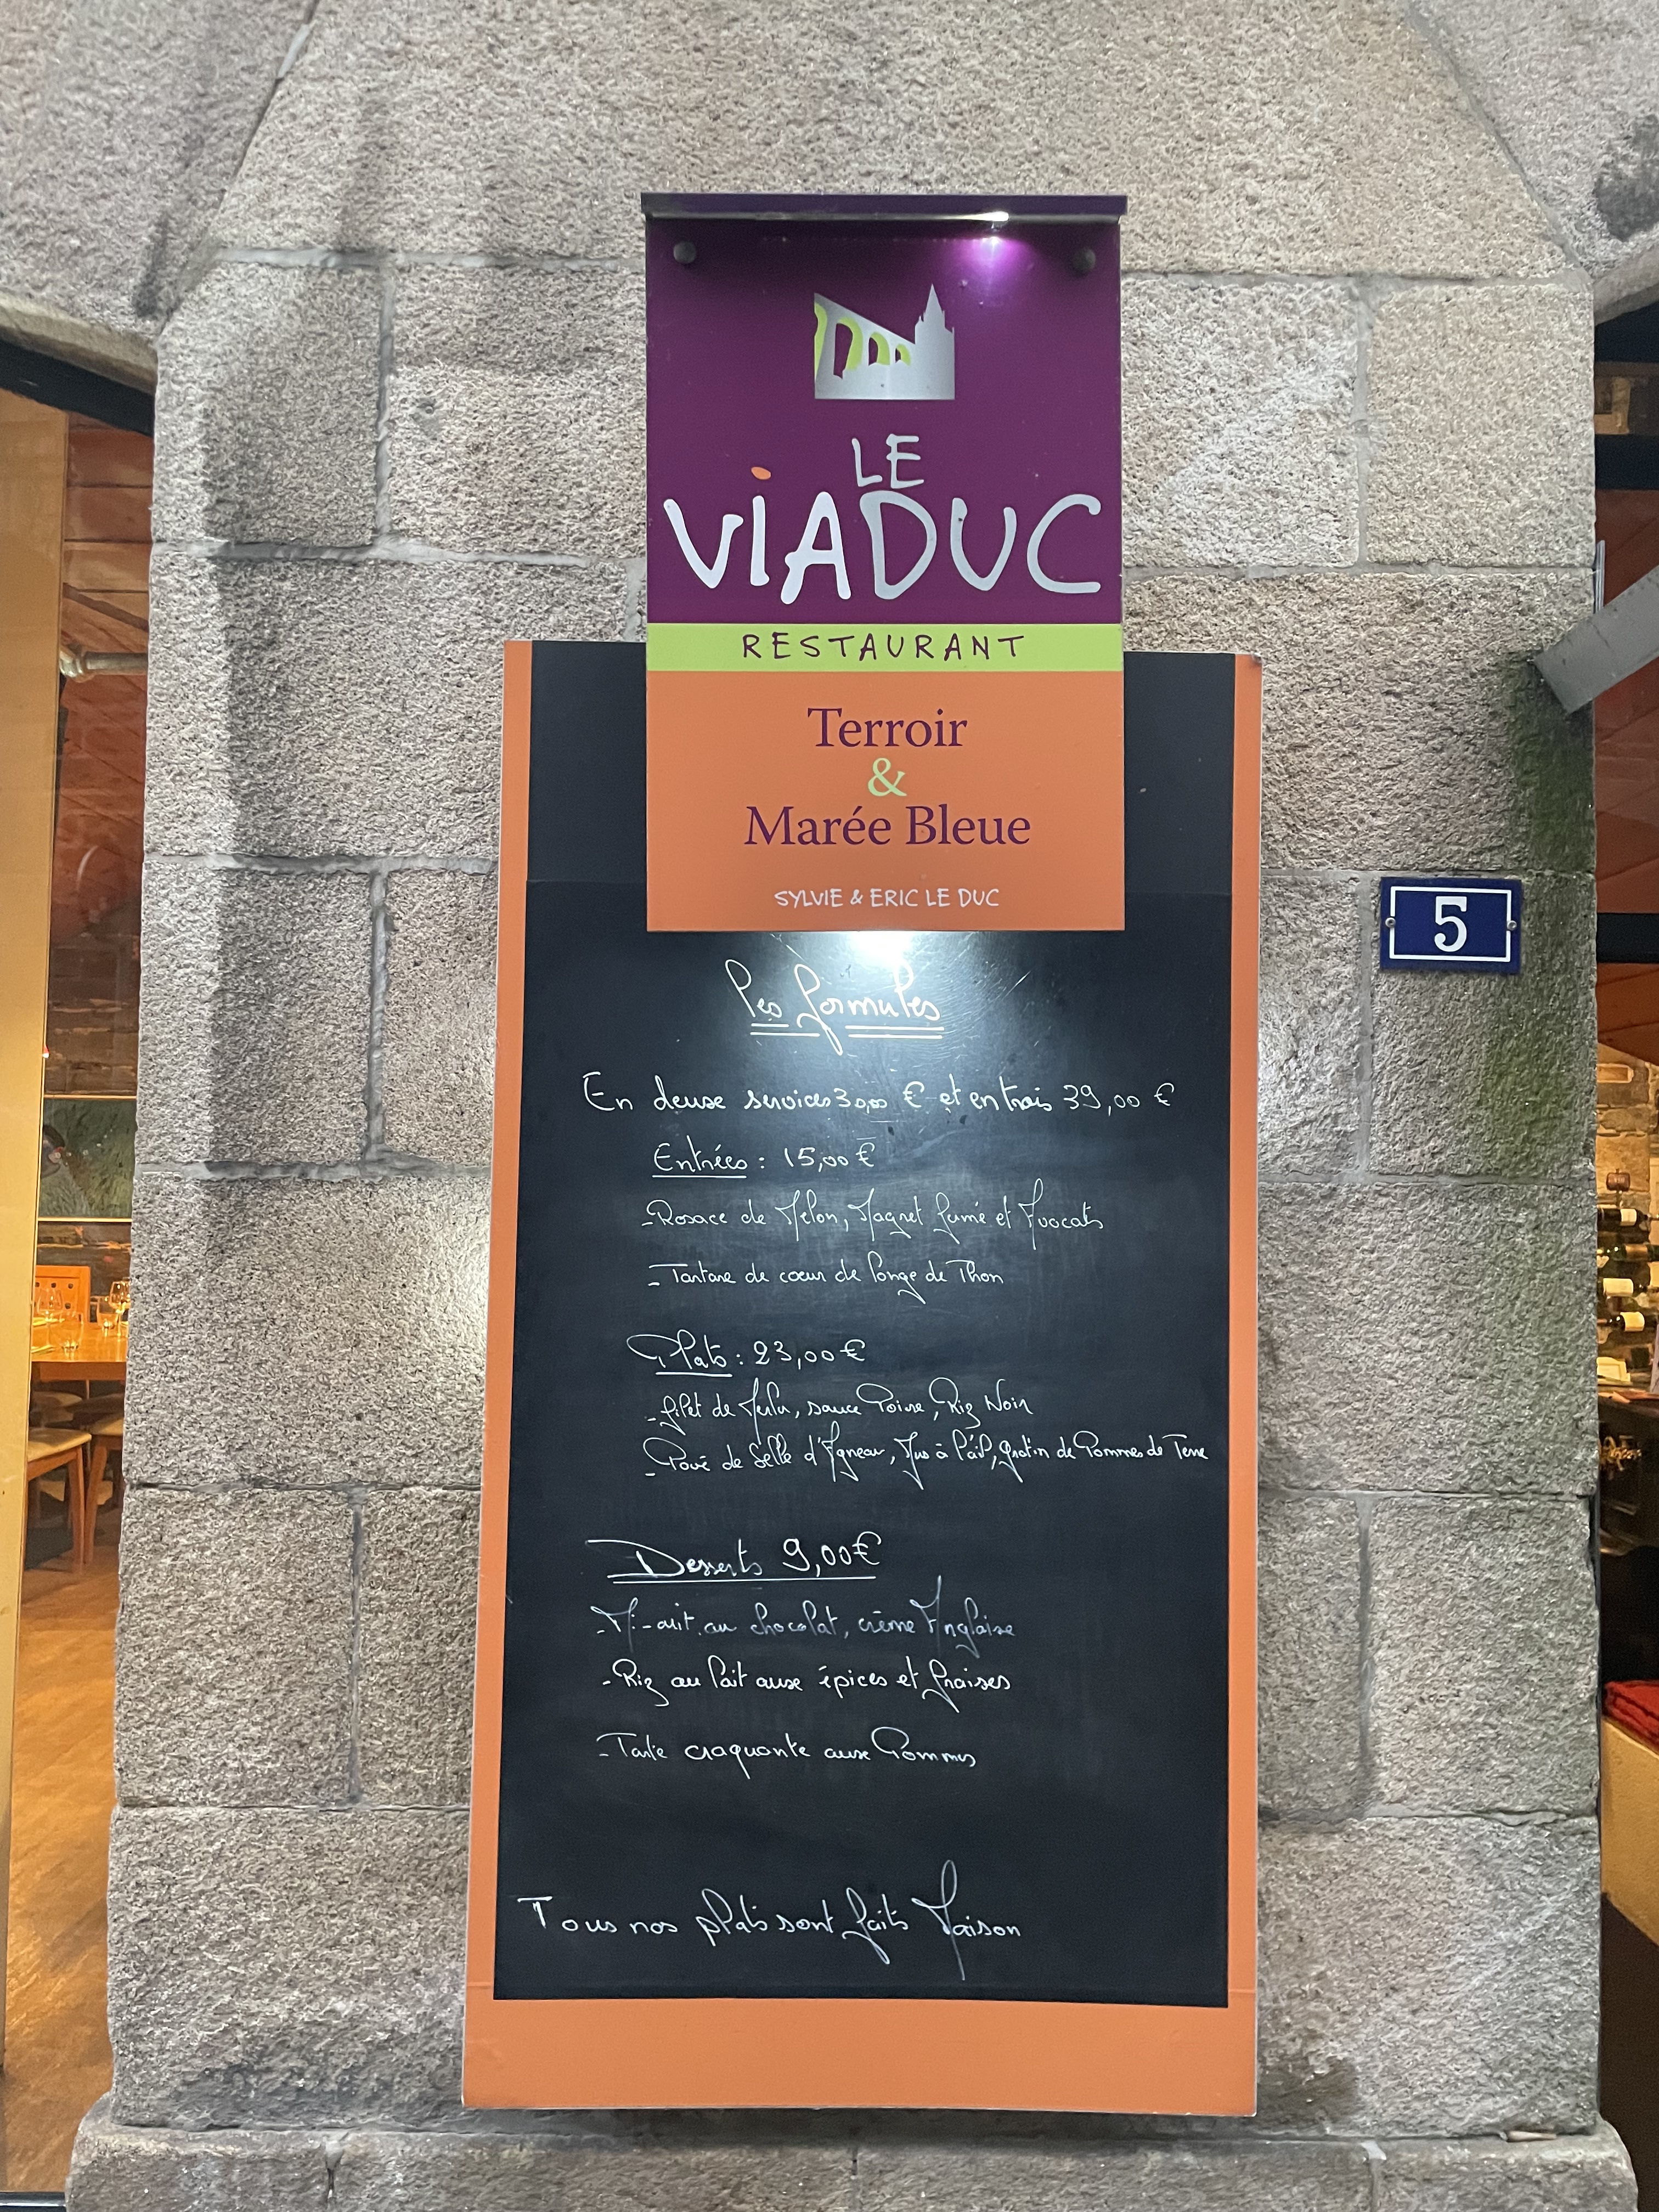 LE
VIADUC
RESTAURANT
Terroir
&
Marée Bleue
SYLVIE & ERIC LE DUC
5
Les formules
En deux services 30,00 € et en trois 39,00 €
Entrées : 15,00 €
- Rosace de Melon, Magret fumé et Avocats
- Tartare de coeur de Longe de Thon
Plats : 23,00 €
- filet de Merlu, sauce Poivre, Riz Noir
- Pavé de Selle d'Agneau, Jus à l'ail, gratin de Pommes de Terre
Desserts 9,00€
- Mi-cuit au chocolat, crème Anglaise
- Riz au Lait aux épices et fraises
- Tarte craquante aux Pommes
Tous nos plats sont faits Maison